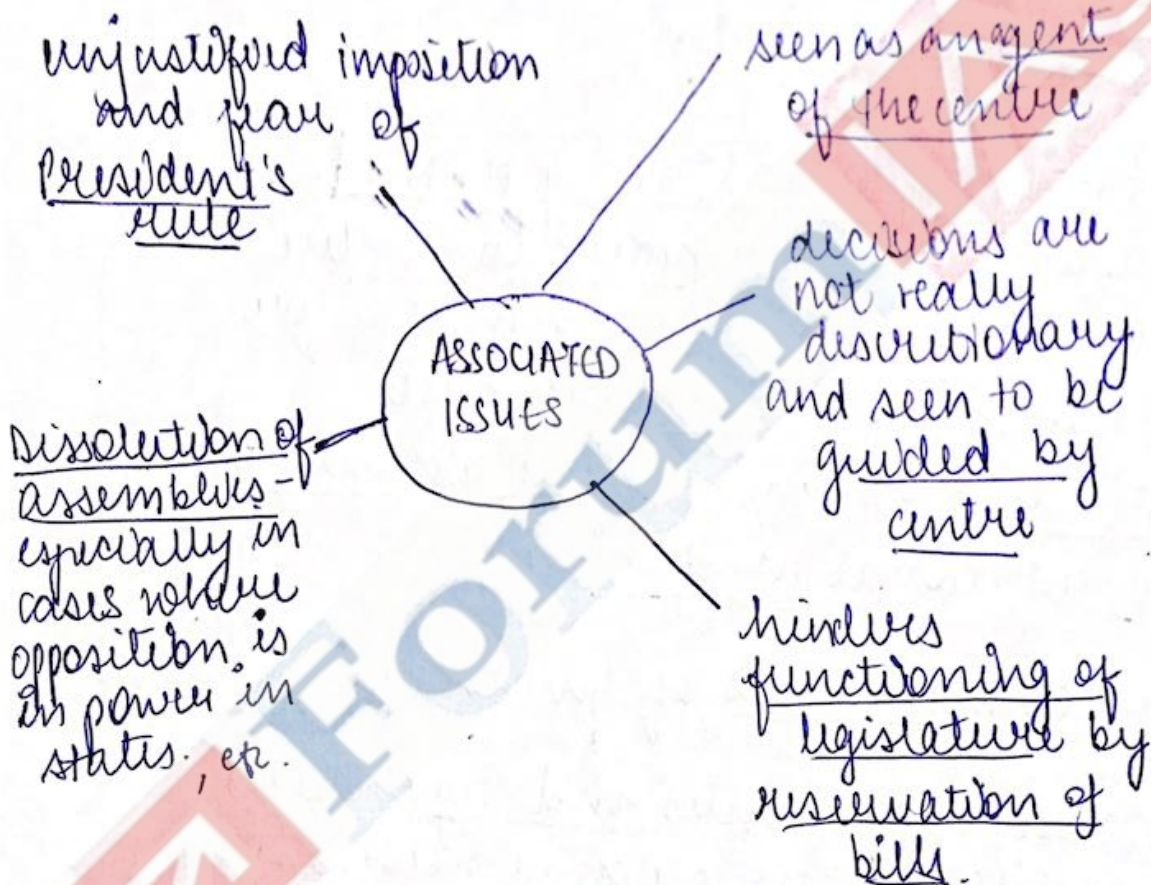 unjustified imposition
and fear of
President's
rule
seen as an agent
of the centre
decisions are
not really
discretionary
and seen to be
guided by
centre
ASSOCIATED
ISSUES
Dissolution of
assemblies-
especially in
cases where
opposition is
in power in
states., etc.
hinders
functioning of
legislature by
reservation of
bills.
Forum
IAS